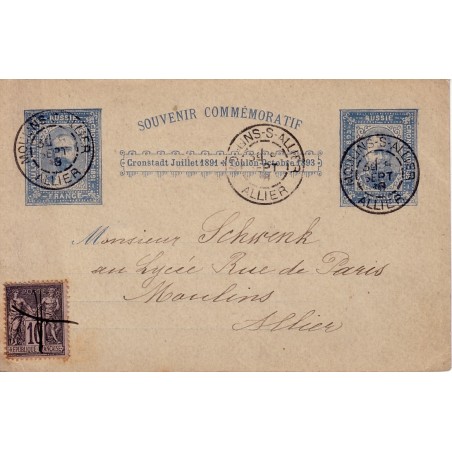 SOUVENIR COMMÉMORATIF
Cronstadt Juillet 1891 Toulon Octobre 1893
RUSSIE
FRANCE
RUSSIE
MOULINS-S-ALLIER
SEPT
ALLIER
MOULINS-S-ALLIER
SEPT
ALLIER
MOULINS-S-ALLIER
SEPT
ALLIER
Monsieur Schwenk
au Lycée Rue de Paris
Moulins
Allier
10
REPUBLIQUE FRANÇAISE